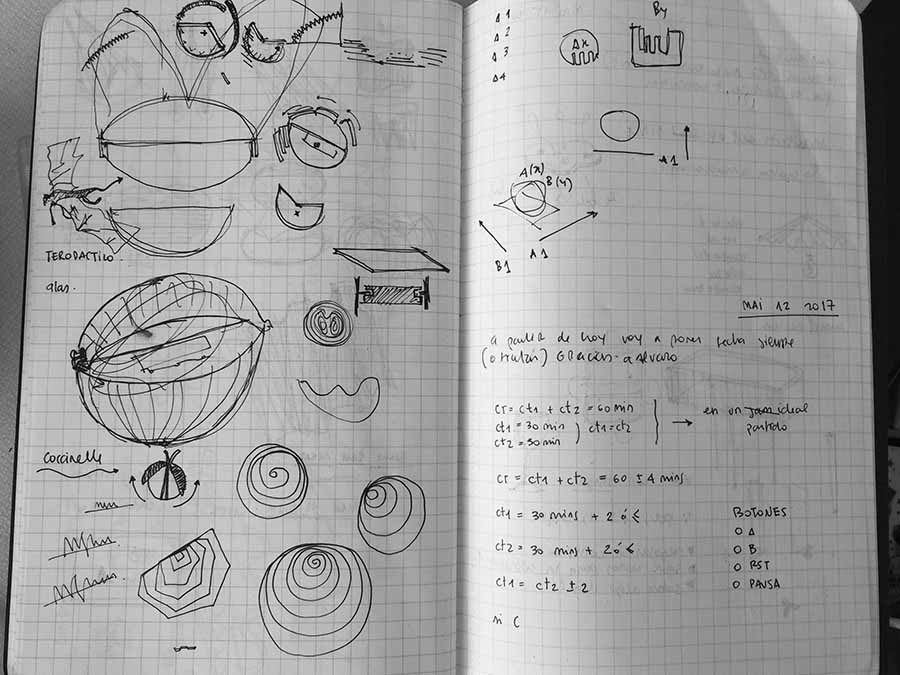 TERODACTILO.
alas.
Coccinelle
Δ1
Δ2
Δ3
Δ4
Δx
By
A1
A(x)
B(y)
B1
A1
MAI 12 2017
a partir de hoy voy a poner fecha siempre
(o tratar) GRACIAS a alvaro
CT = CT1 + CT2 = 60 min
CT1 = 30 min
CT2 = 30 min
CT1 = CT2
en un ideal
partido
CT = CT1 + CT2 = 60 ± 4 mins
CT1 = 30 mins + 2 ó ≤
CT2 = 30 mins + 2 ó ≤
CT1 = CT2 ± 2
BOTONES
O A
O B
O RST
O PAUSA
si C